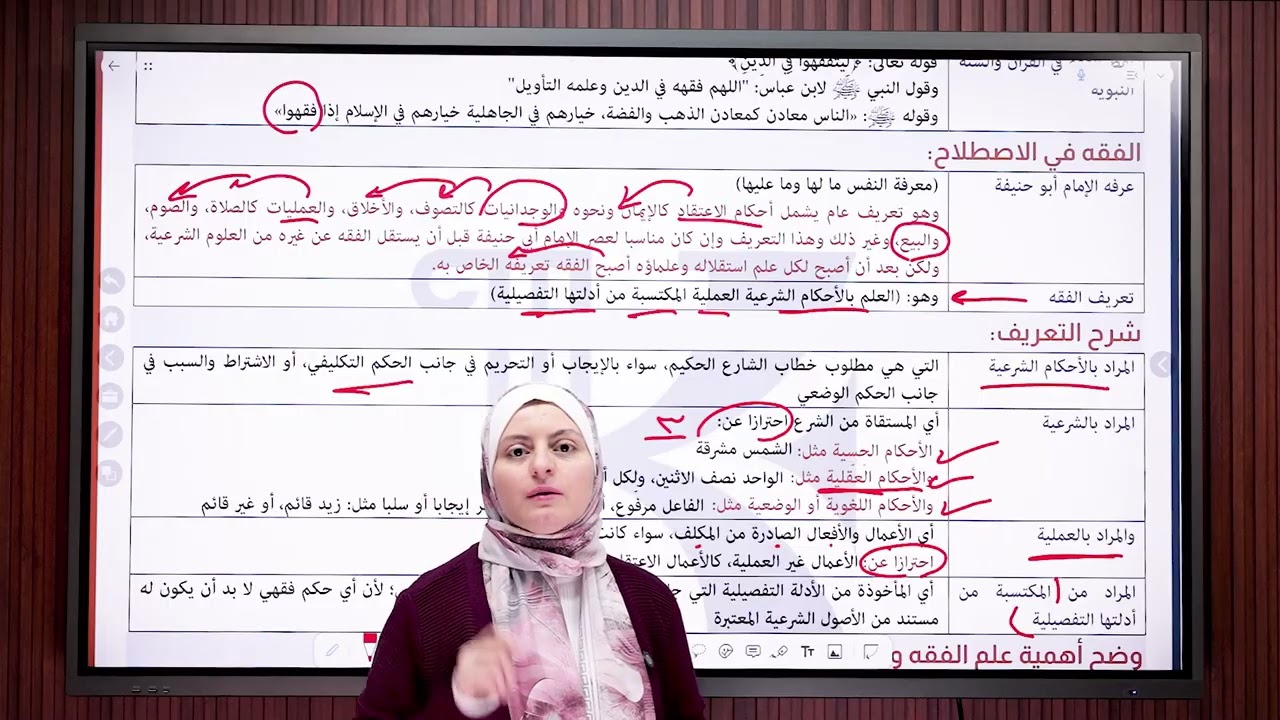 في القرآن والسنة
النبوية
قوله تعالى: ﴿لِيَتَفَقَّهُوا فِي الدِّينِ﴾
وقول النبي ﷺ لابن عباس: "اللهم فقهه في الدين وعلمه التأويل"
وقوله ﷺ: «الناس معادن كمعادن الذهب والفضة، خيارهم في الجاهلية خيارهم في الإسلام إذا فقهوا»
الفقه في الاصطلاح:
عرفه الإمام أبو حنيفة
(معرفة النفس ما لها وما عليها)
وهو تعريف عام يشمل أحكام الاعتقاد كالإيمان ونحوه والوجدانيات كالتصوف، والأخلاق، والعمليات كالصلاة، والصوم،
والبيع، وغير ذلك وهذا التعريف وإن كان مناسبا لعصر الإمام أبي حنيفة قبل أن يستقل الفقه عن غيره من العلوم الشرعية،
ولكن بعد أن أصبح لكل علم استقلاله وعلماؤه أصبح الفقه تعريفه الخاص به.
تعريف الفقه
وهو: (العلم بالأحكام الشرعية العملية المكتسبة من أدلتها التفصيلية)
شرح التعريف:
المراد بالأحكام الشرعية
التي هي مطلوب خطاب الشارع الحكيم، سواء بالإيجاب أو التحريم في جانب الحكم التكليفي، أو الاشتراط والسبب في
جانب الحكم الوضعي
المراد بالشرعية
أي المستقاة من الشرع احترازا عن:
الأحكام الحسية مثل: الشمس مشرقة
والأحكام العقلية مثل: الواحد نصف الاثنين، ولكل
والأحكام اللغوية أو الوضعية مثل: الفاعل مرفوع، إيجابا أو سلبا مثل: زيد قائم، أو غير قائم
والمراد بالعملية
أي الأعمال والأفعال الصادرة من المكلف، سواء كانت
احترازا عن: الأعمال غير العملية، كالأعمال
المراد من المكتسبة من
أدلتها التفصيلية
أي المأخوذة من الأدلة التفصيلية التي لأن أي حكم فقهي لا بد أن يكون له
مستند من الأصول الشرعية المعتبرة
وضح أهمية علم الفقه